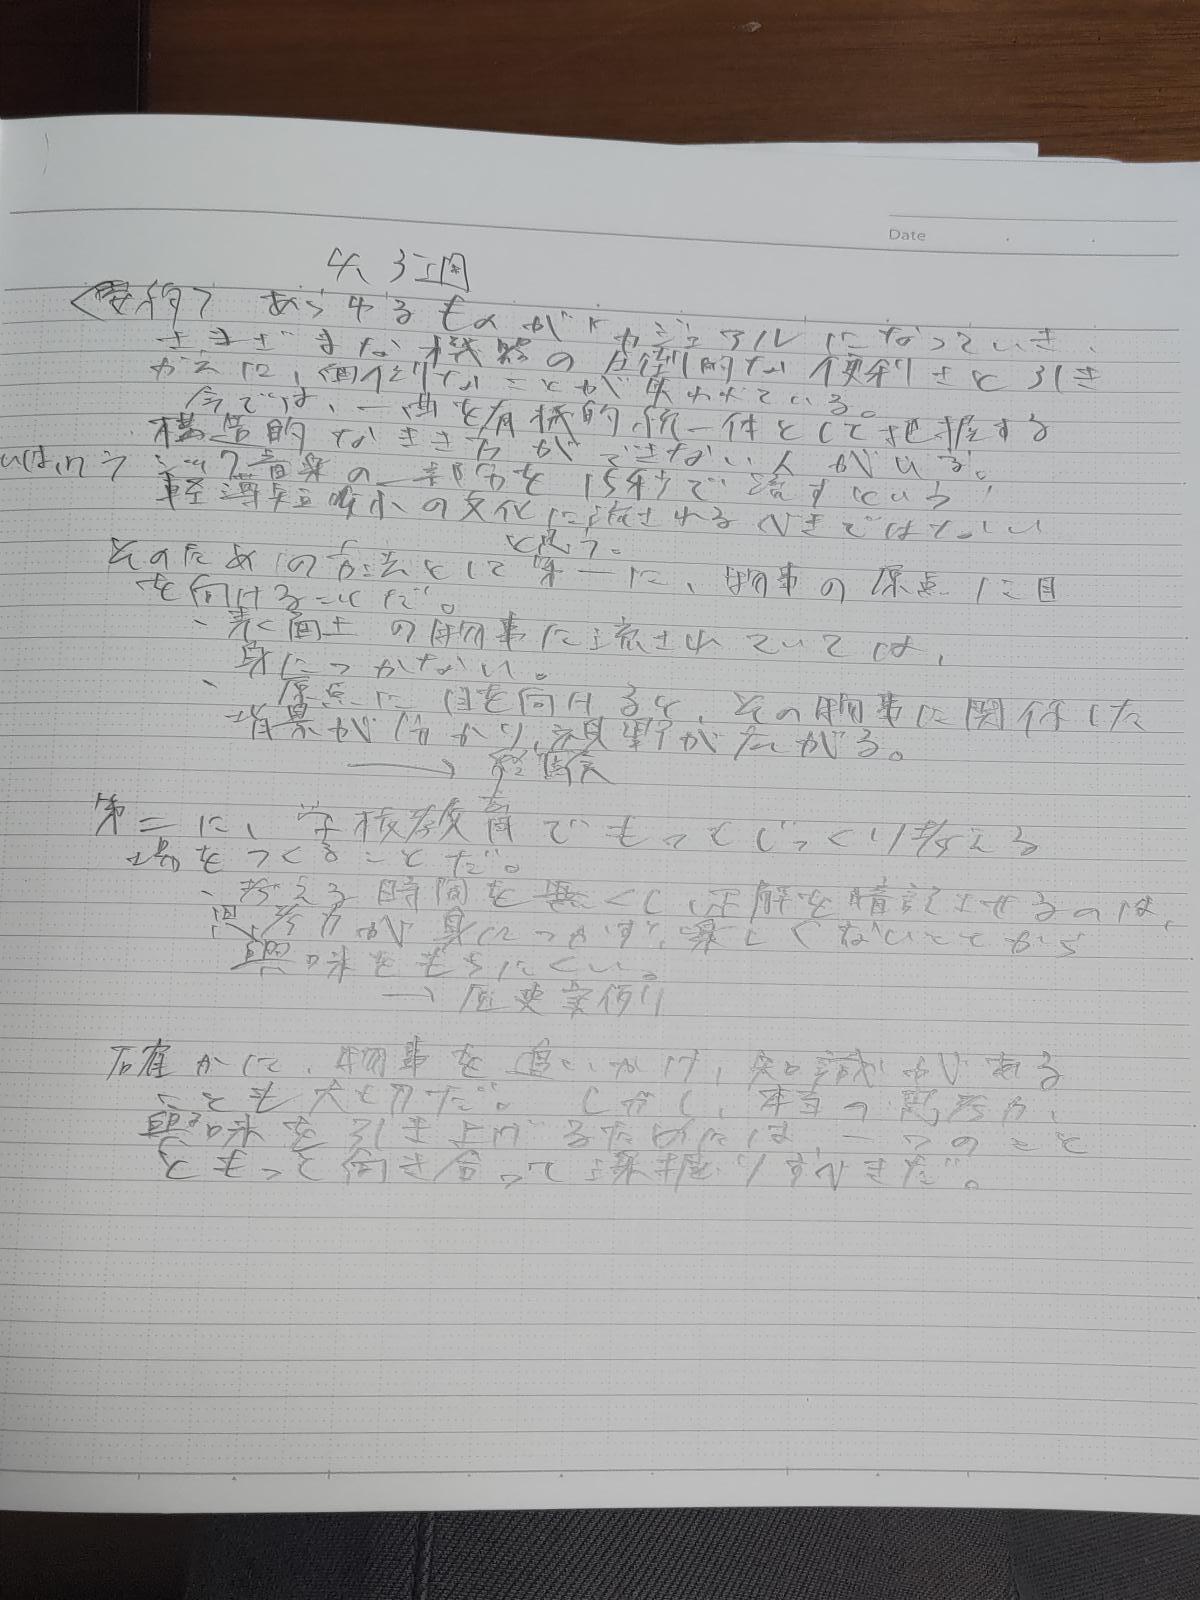 Date
4.3週
<要約> あらゆるものがカジュアルになっていき、
さまざまな機器の圧倒的な便利さと引き
かえに、個別なことが失われている。
今では、一曲を有機的統一体として把握する
構造的なききかたができない人がいる。
いわんや 音楽の一部分を15秒で流すという、
軽薄短小の文化に流されるべきではない
と思う。
そのための方法として第一に、物事の原点に目
を向けることだ。
・表面上の物事に流されていては、
身につかない。
・原点に目を向けると、その物事に関係した
背景が分かり、視野が広がる。
→
第二に、学校教育でもってじっくり考える
場をつくることだ。
・考える時間を無くし、正解を暗記させるのは、
思考力が身につかず、楽しくないことから
興味をもちにくい。
→ 歴史実例
確かに、物事を追いかけ、知識がある
ことも大切だ。しかし、本当の思考力、
興味を引き上げるためには、一つのこと
ともって向き合って深掘りすべきだ。